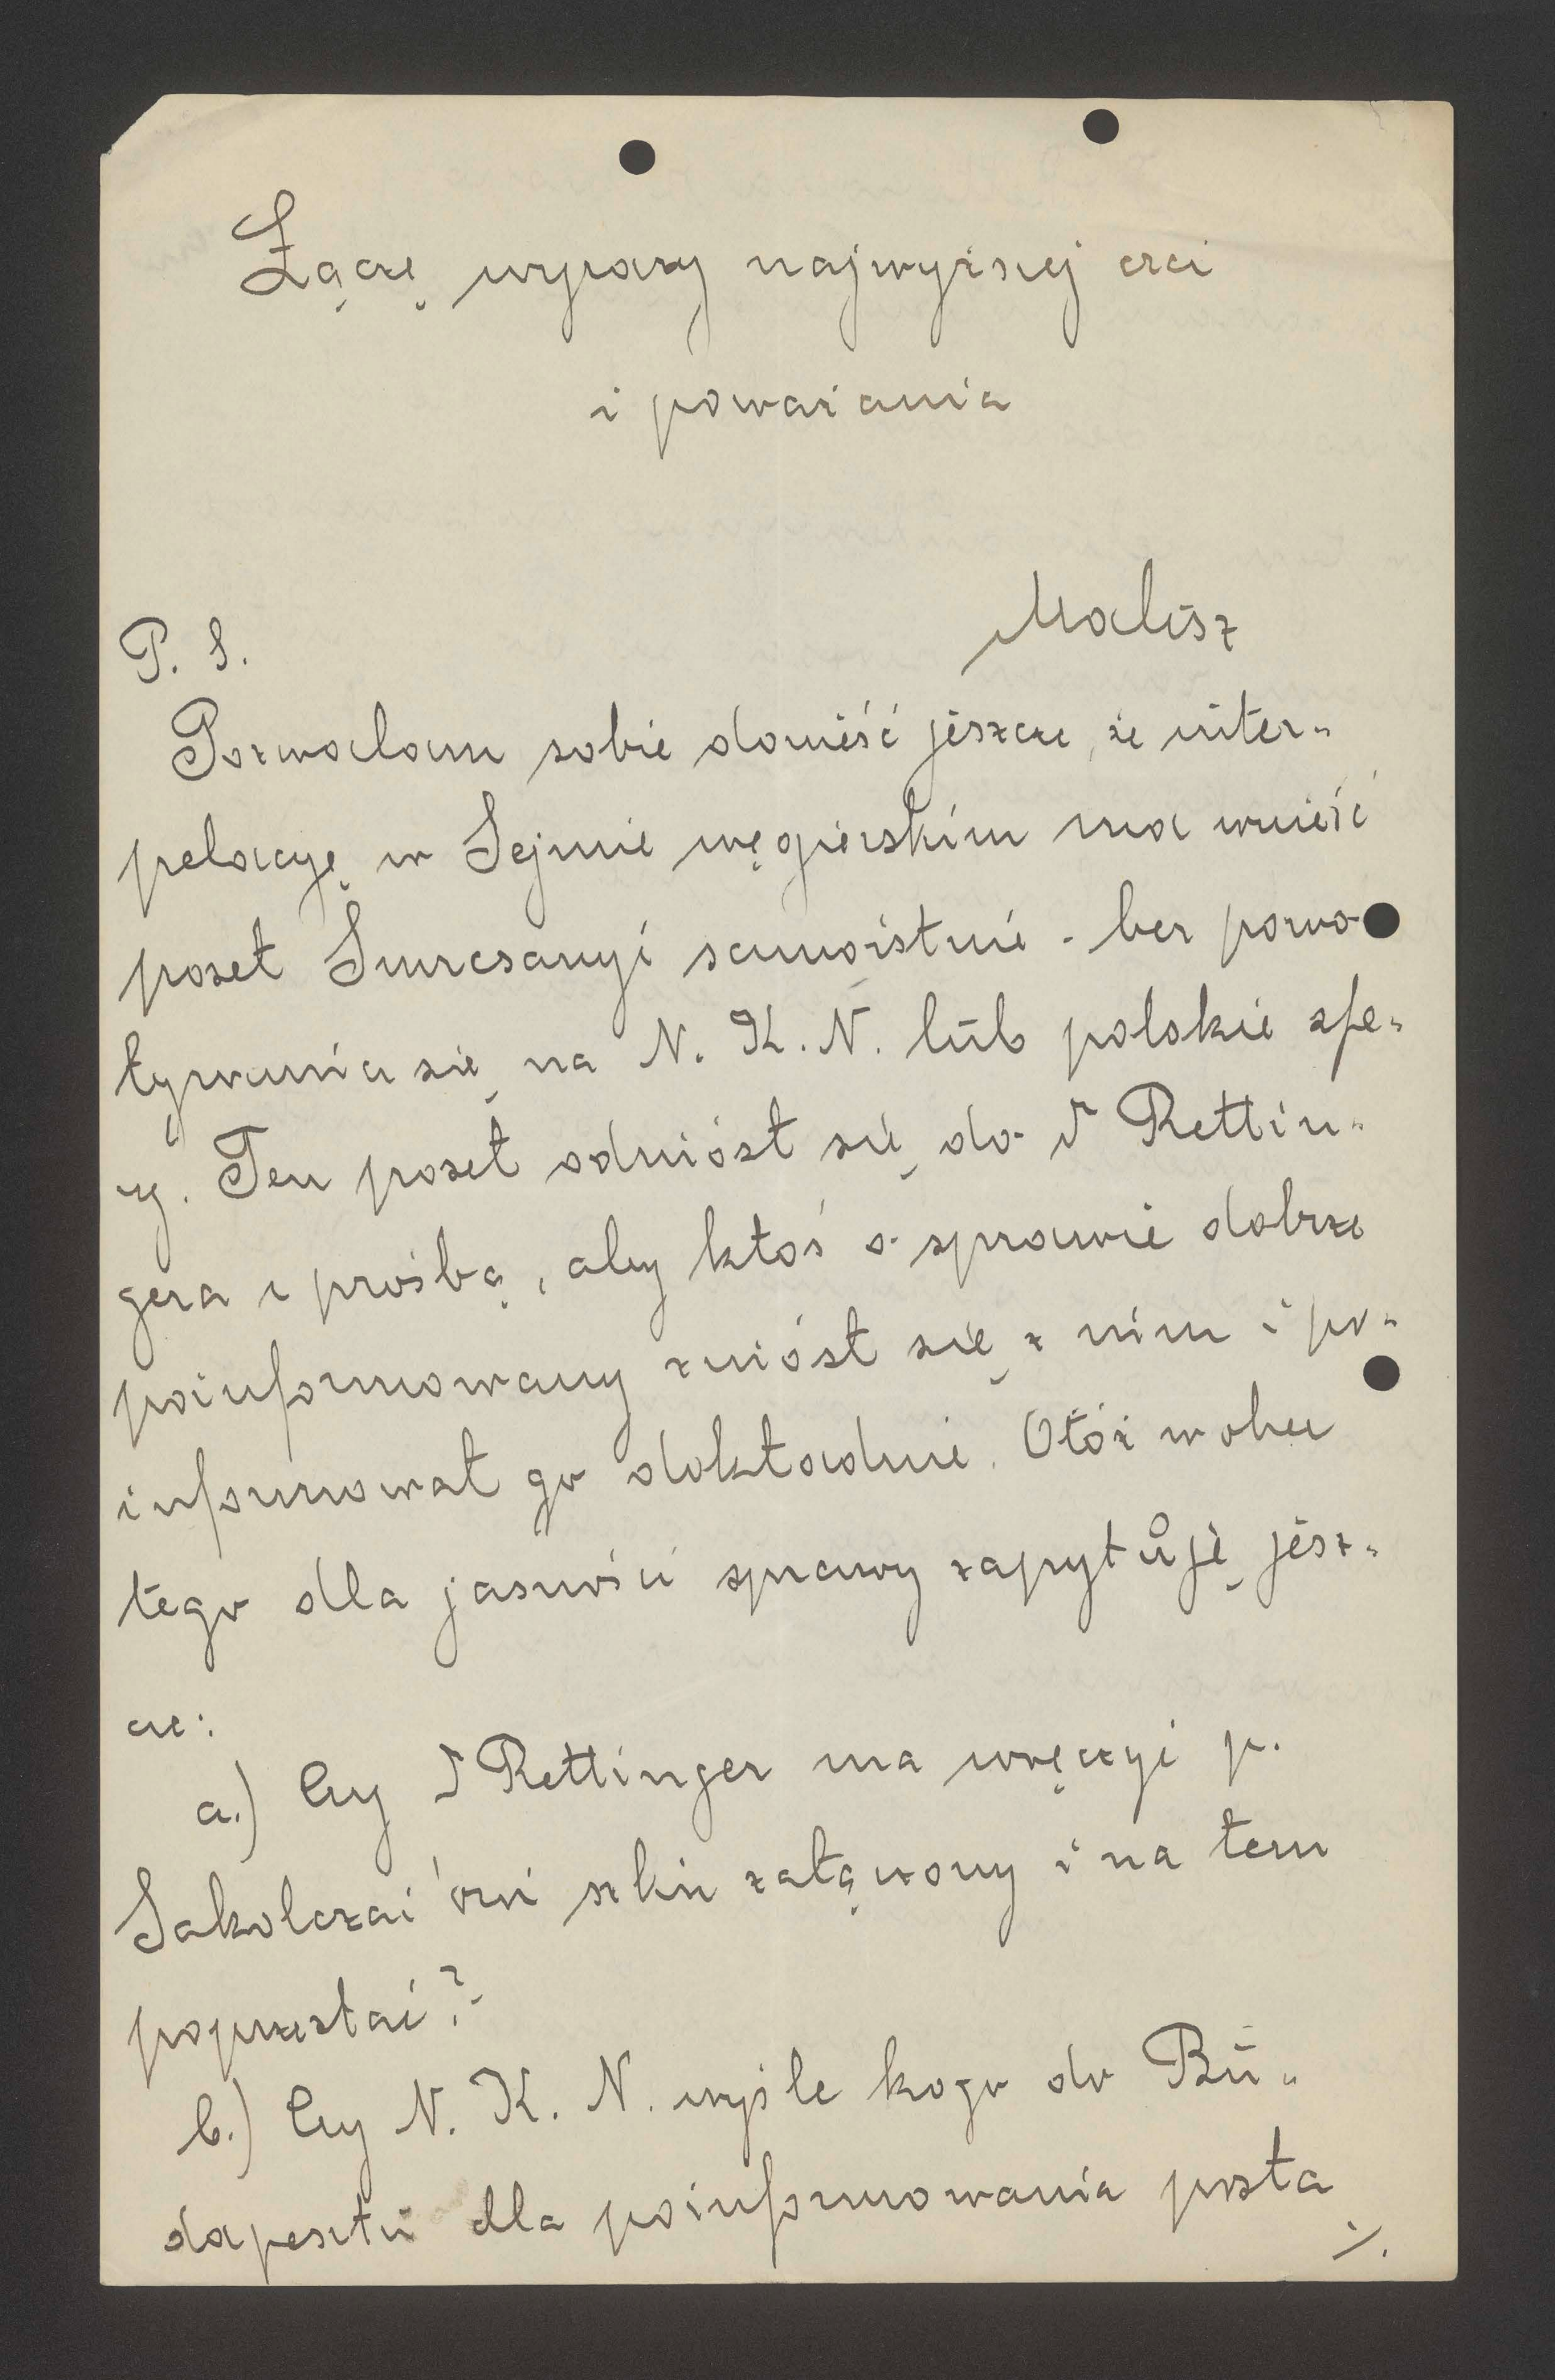 Łączę wyrazy najwyższej czci
i poważania
Malisz
P. S.
Pozwalam sobie donieść jeszcze, że inter-
pelacyę w Sejmie węgierskim ma wnieść
poseł Smrcsanyi samoistnie - bez powo-
ływania się na N. K. N. lub polskie sfe-
ry. Ten poseł odniósł się do Dr Rettin-
gera z prośbą, aby ktoś o sprawie dobrze
poinformowany zniósł się z nim i po-
informował go dokładnie. Otóż wobec
tego dla jasności sprawy zapytuję jesz-
cze:
a.) Czy Dr Rettinger ma wręczyć p.
Sakolczai'owi szkic załączony i na tem
poprzestać?
b.) Czy N. K. N. wyśle kogo do Bu-
dapesztu dla poinformowania posła
./.